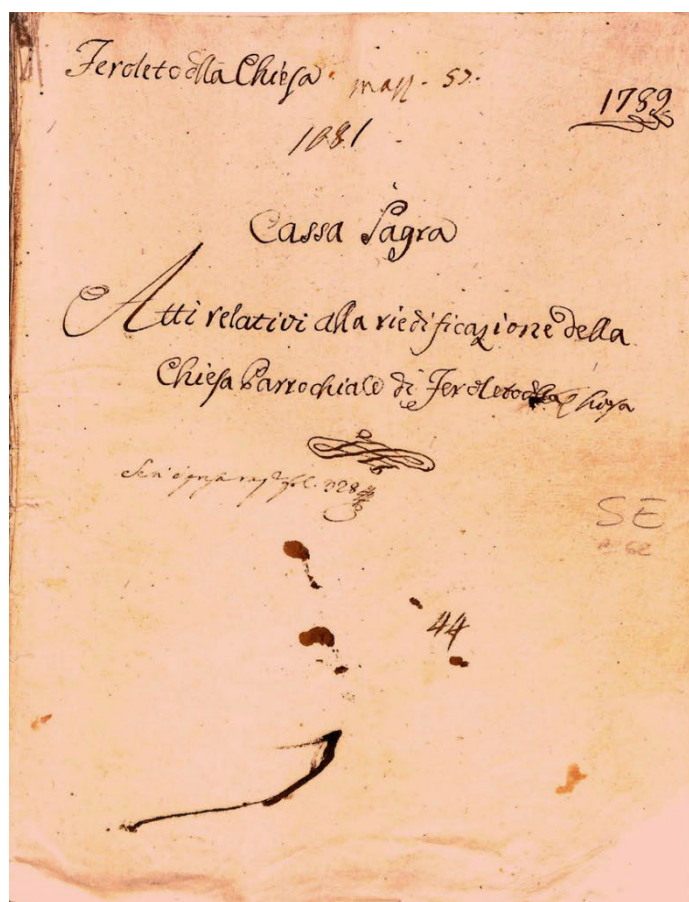 Feroleto della Chiesa
1789
1081
Cassa Sagra
Atti relativi alla riedificazione della
Chiesa Parrochiale di Feroleto della Chiesa
328
SE
62
44